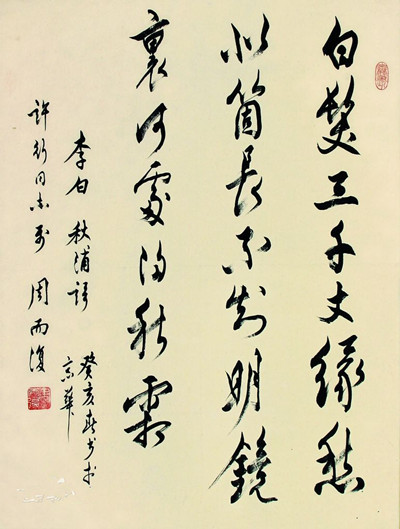 白髮三千丈緣愁
似箇長不知明鏡
裏何處得秋霜
李白 秋浦詩
癸亥春書於
京華
許同志 周而復